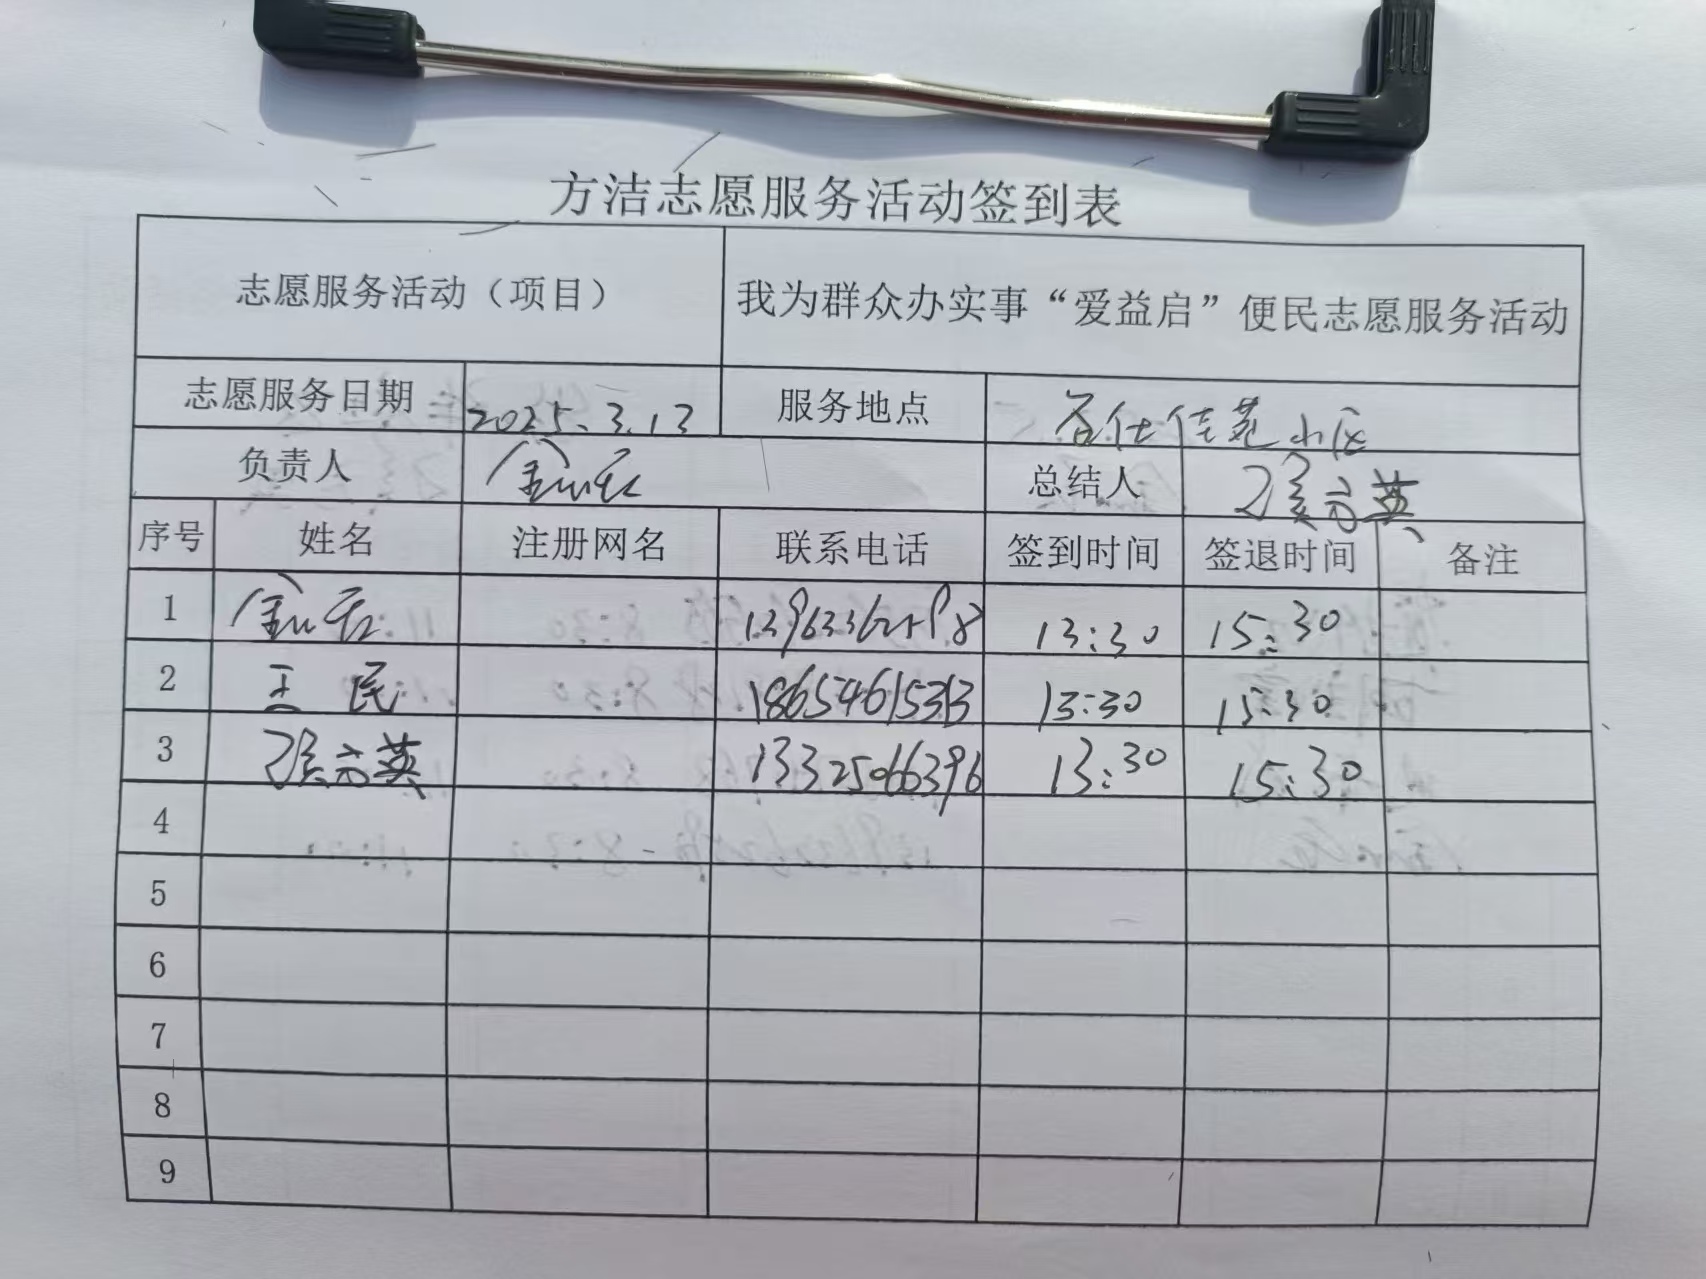 方洁志愿服务活动签到表
志愿服务活动（项目） 我为群众办实事“爱益启”便民志愿服务活动
志愿服务日期 2025.3.13 服务地点 佳苑小区
负责人 总结人
序号 姓名 注册网名 联系电话 签到时间 签退时间 备注
1 13:30 15:30
2 王民 18654615313 13:30 15:30
3 13325066396 13:30 15:30
4
5
6
7
8
9